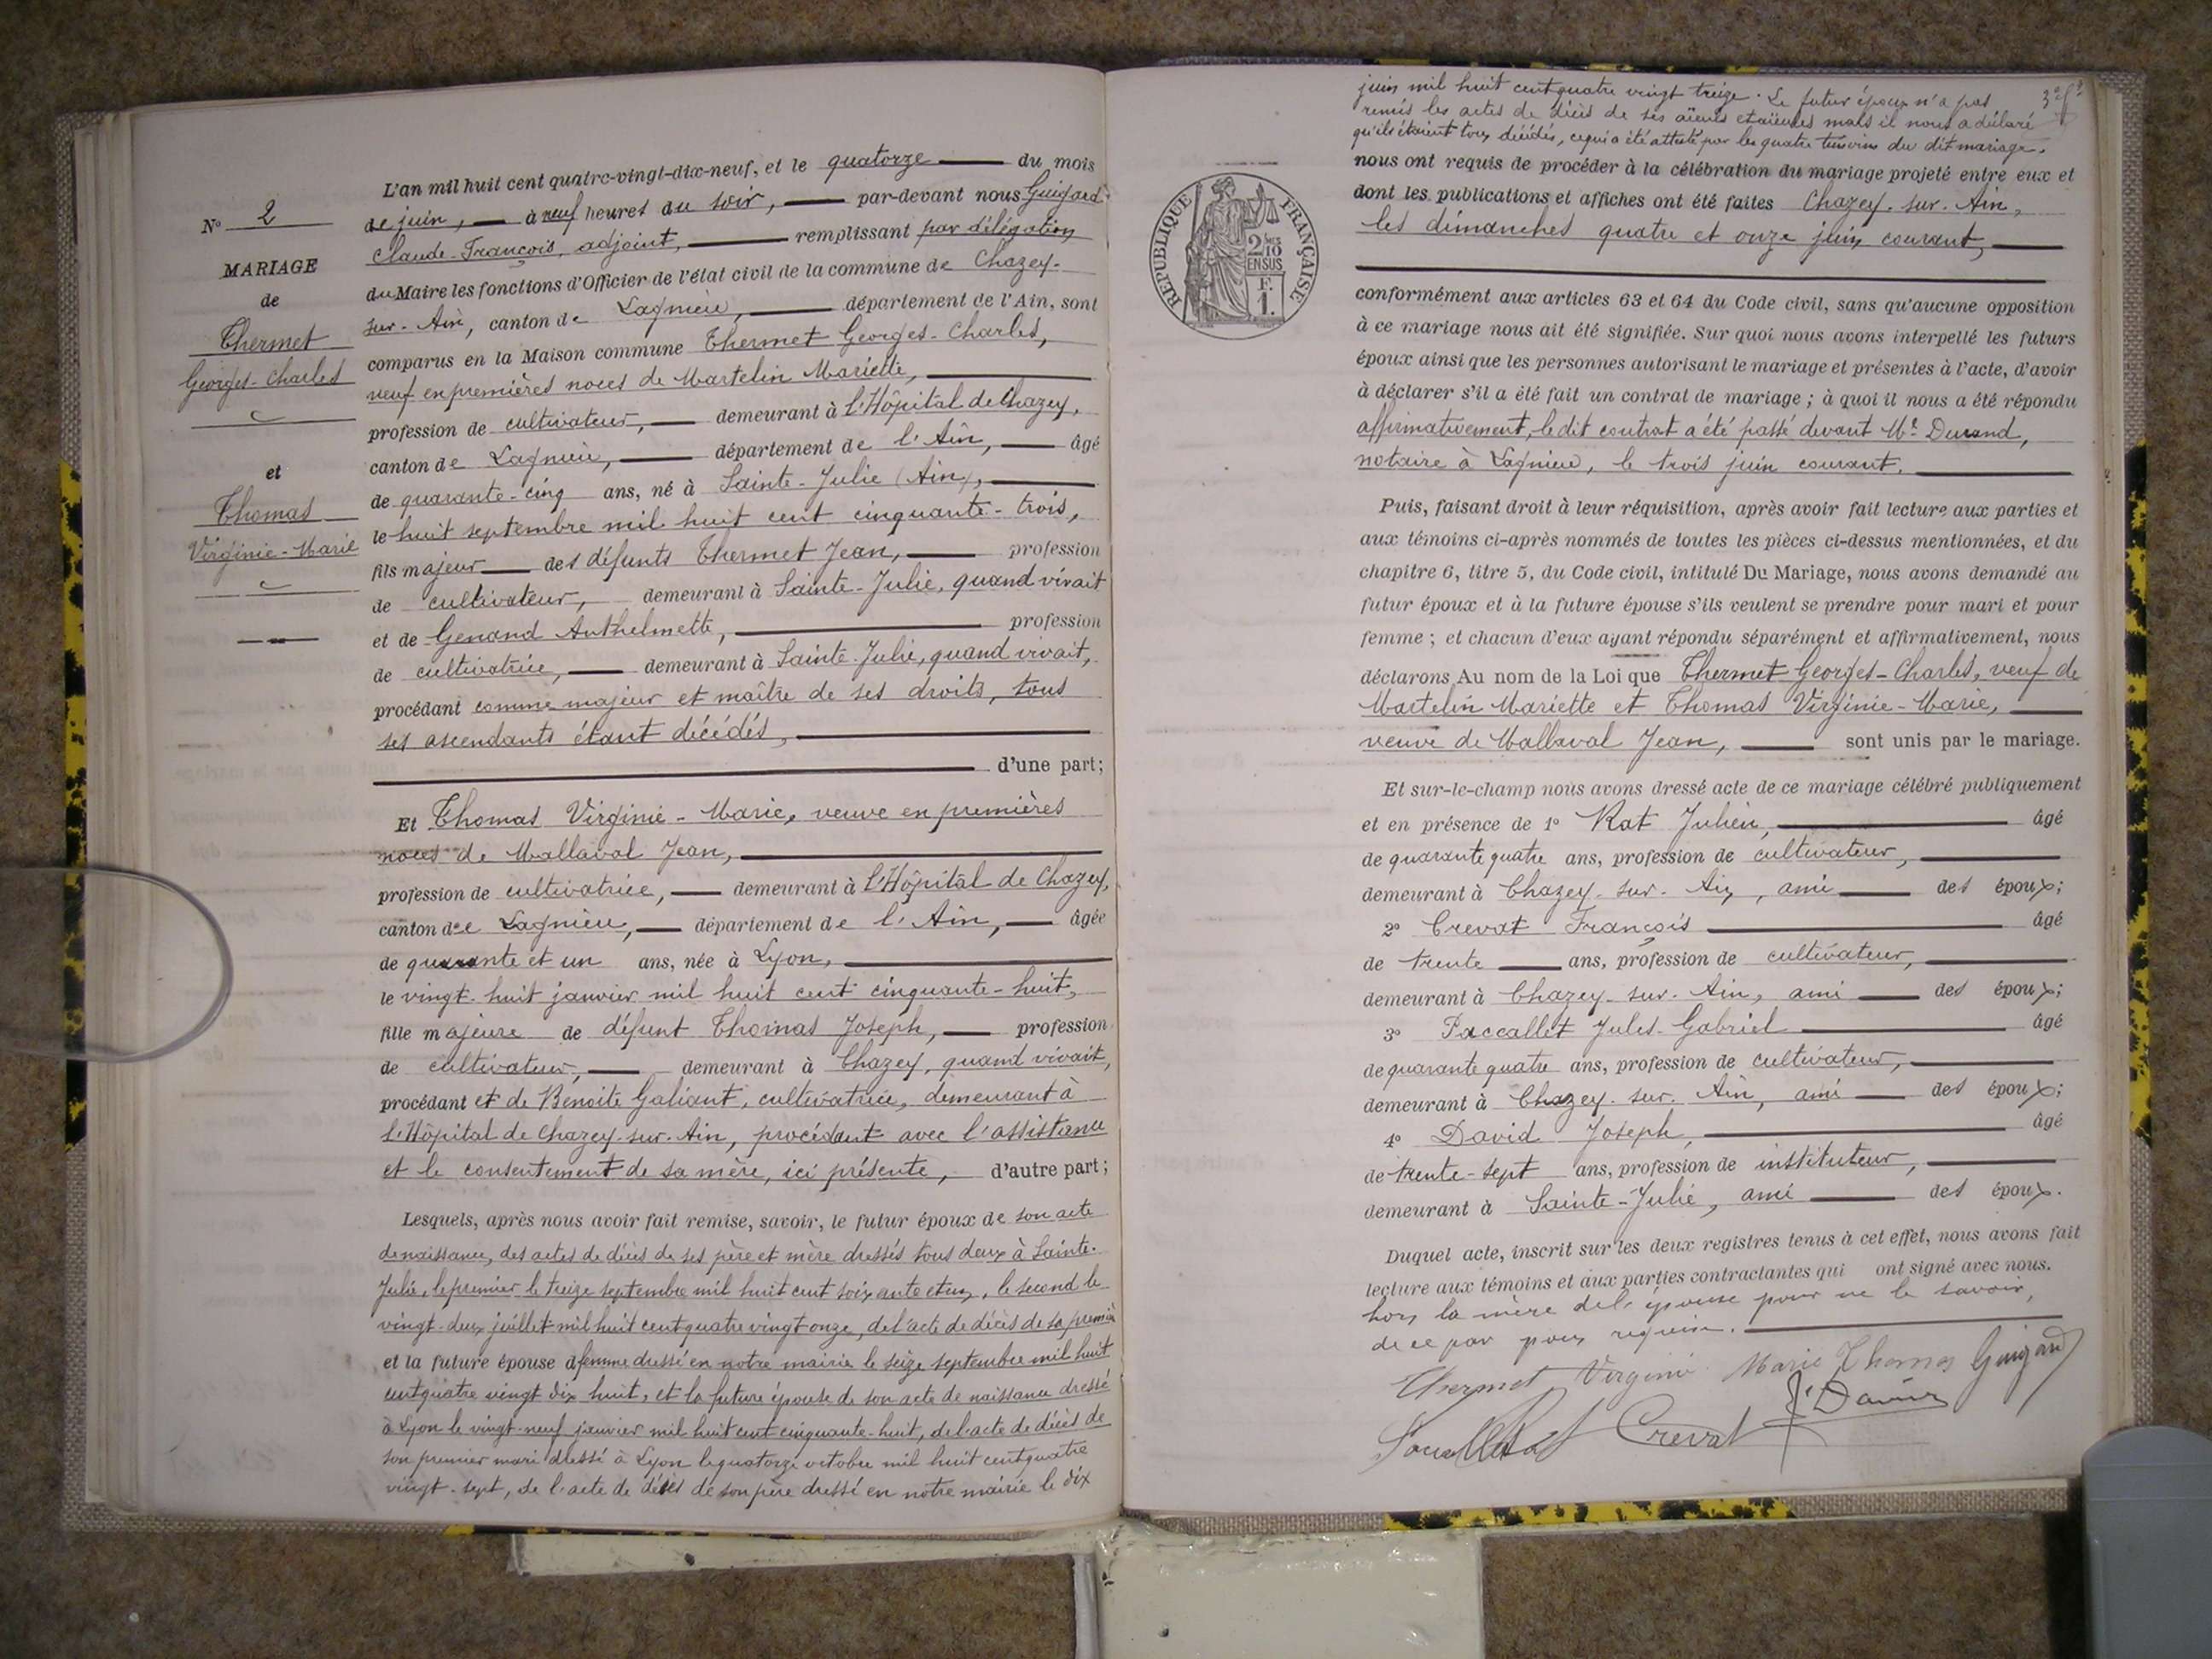 N° 2
MARIAGE
de
Thermet
Georges-Charles
et
Thomas
Virginie-Marie
L'an mil huit cent quatre-vingt-dix-neuf, et le quatorze du mois
de juin, à neuf heures du soir, par-devant nous Guigard
Claude-François, adjoint, remplissant par délégation
du Maire les fonctions d'Officier de l'état civil de la commune de Chazey-
sur-Ain, canton de Lagnieu, département de l'Ain, sont
comparus en la Maison commune Thermet Georges-Charles,
veuf en premières noces de Martelin Mariette,
profession de cultivateur, demeurant à l'Hôpital de Chazey,
canton de Lagnieu, département de l'Ain, âgé
de quarante-cinq ans, né à Sainte-Julie (Ain),
le huit septembre mil huit cent cinquante-trois,
fils majeur des défunts Thermet Jean, profession
de cultivateur, demeurant à Sainte-Julie, quand vivait
et de Genand Anthelmette, profession
de cultivatrice, demeurant à Sainte-Julie, quand vivait,
procédant comme majeur et maître de ses droits, tous
ses ascendants étant décédés,
d'une part;
Et Thomas Virginie-Marie, veuve en premières
noces de Mallaval Jean,
profession de cultivatrice, demeurant à l'Hôpital de Chazey,
canton de Lagnieu, département de l'Ain, âgée
de quarante et un ans, née à Lyon,
le vingt-huit janvier mil huit cent cinquante-huit,
fille majeure de défunt Thomas Joseph, profession
de cultivateur, demeurant à Chazey, quand vivait,
procédant et de Benoite Galiant, cultivatrice, demeurant à
l'Hôpital de Chazey-sur-Ain, procédant avec l'assistance
et le consentement de sa mère, ici présente, d'autre part;
Lesquels, après nous avoir fait remise, savoir, le futur époux de son acte
de naissance, des actes de décès de ses père et mère dressés tous deux à Sainte-
Julie, le premier le treize septembre mil huit cent soixante et un, le second le
vingt-deux juillet mil huit cent quatre vingt onze, de l'acte de décès de sa première
et la future épouse d femme dressé en notre mairie le seize septembre mil huit
cent quatre vingt dix huit, et la future épouse de son acte de naissance dressé
à Lyon le vingt-neuf janvier mil huit cent cinquante-huit, de l'acte de décès de
son premier mari dressé à Lyon le quatorze octobre mil huit cent quatre
vingt-sept, de l'acte de décès de son père dressé en notre mairie le dix
juin mil huit cent quatre vingt treize. Le futur époux n'a pas
remis les actes de décès de ses aïeuls et aïeules mais il nous a déclaré
qu'ils étaient tous décédés, ce qui a été attesté par les quatre témoins du dit mariage.
RÉPUBLIQUE FRANÇAISE
2/10 MES
EN SUS
F.
1.
nous ont requis de procéder à la célébration du mariage projeté entre eux et
dont les publications et affiches ont été faites Chazey-sur-Ain,
les dimanches quatre et onze juin courant,
conformément aux articles 63 et 64 du Code civil, sans qu'aucune opposition
à ce mariage nous ait été signifiée. Sur quoi nous avons interpellé les futurs
époux ainsi que les personnes autorisant le mariage et présentes à l'acte, d'avoir
à déclarer s'il a été fait un contrat de mariage; à quoi il nous a été répondu
affirmativement, le dit contrat a été passé devant Me Durand,
notaire à Lagnieu, le trois juin courant.
Puis, faisant droit à leur réquisition, après avoir fait lecture aux parties et
aux témoins ci-après nommés de toutes les pièces ci-dessus mentionnées, et du
chapitre 6, titre 5, du Code civil, intitulé Du Mariage, nous avons demandé au
futur époux et à la future épouse s'ils veulent se prendre pour mari et pour
femme; et chacun d'eux ayant répondu séparément et affirmativement, nous
déclarons Au nom de la Loi que Thermet Georges-Charles, veuf de
Martelin Mariette et Thomas Virginie-Marie,
veuve de Mallaval Jean, sont unis par le mariage.
Et sur-le-champ nous avons dressé acte de ce mariage célébré publiquement
et en présence de 1° Rat Julien, âgé
de quarante quatre ans, profession de cultivateur,
demeurant à Chazey-sur-Ain, ami des époux;
2° Crevat François âgé
de trente ans, profession de cultivateur,
demeurant à Chazey-sur-Ain, ami des époux;
3° Paccallet Jules-Gabriel âgé
de quarante quatre ans, profession de cultivateur,
demeurant à Chazey-sur-Ain, ami des époux;
4° David Joseph, âgé
de trente-sept ans, profession de instituteur,
demeurant à Sainte-Julie, ami des époux.
Duquel acte, inscrit sur les deux registres tenus à cet effet, nous avons fait
lecture aux témoins et aux parties contractantes qui ont signé avec nous.
hors la mère de l'épouse pour ne le savoir,
de ce par nous requise.
Thermet Virginie Marie Thomas Guigard
Crevat J. David